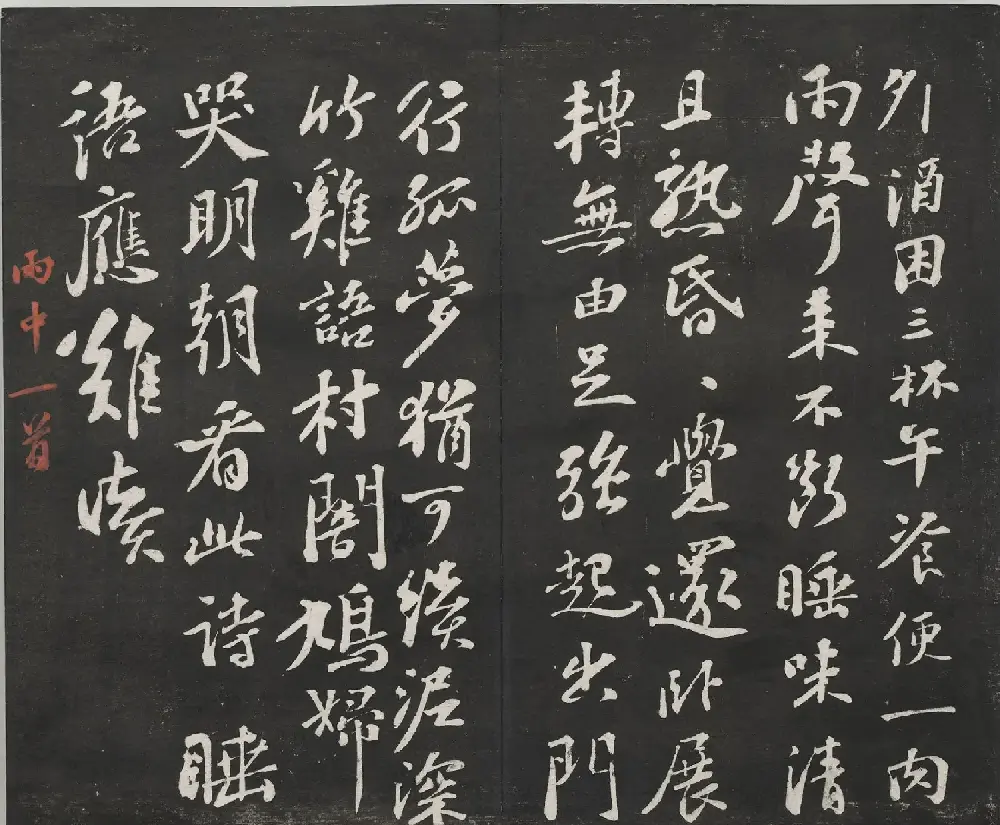 卯酒困三杯午飡便一肉
雨聲来不断睡味清
且熟昏、覺還卧展
轉無由足強起出門
行孤夢猶可續泥深
竹雞語村闇鳩婦
哭明朝看此詩睡
語應難讀
雨中一首